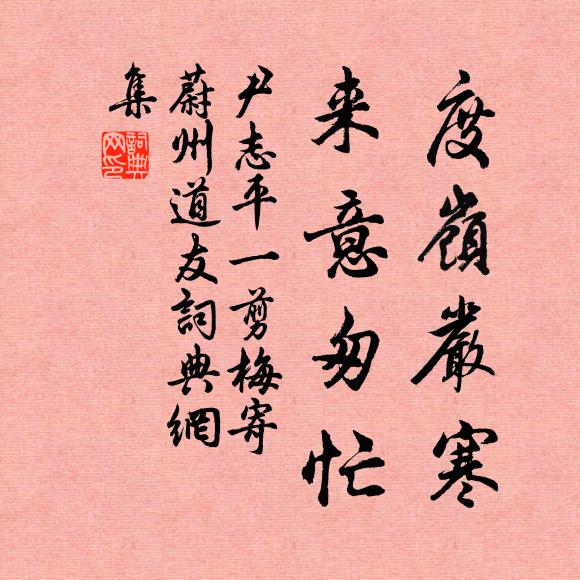 度嶺嚴寒
来意匆忙
尹志平一剪梅寄
蔚州道友詞典網
集
詞典網印